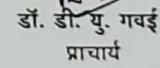 डॉ. डी. यु. गवई
प्राचार्य